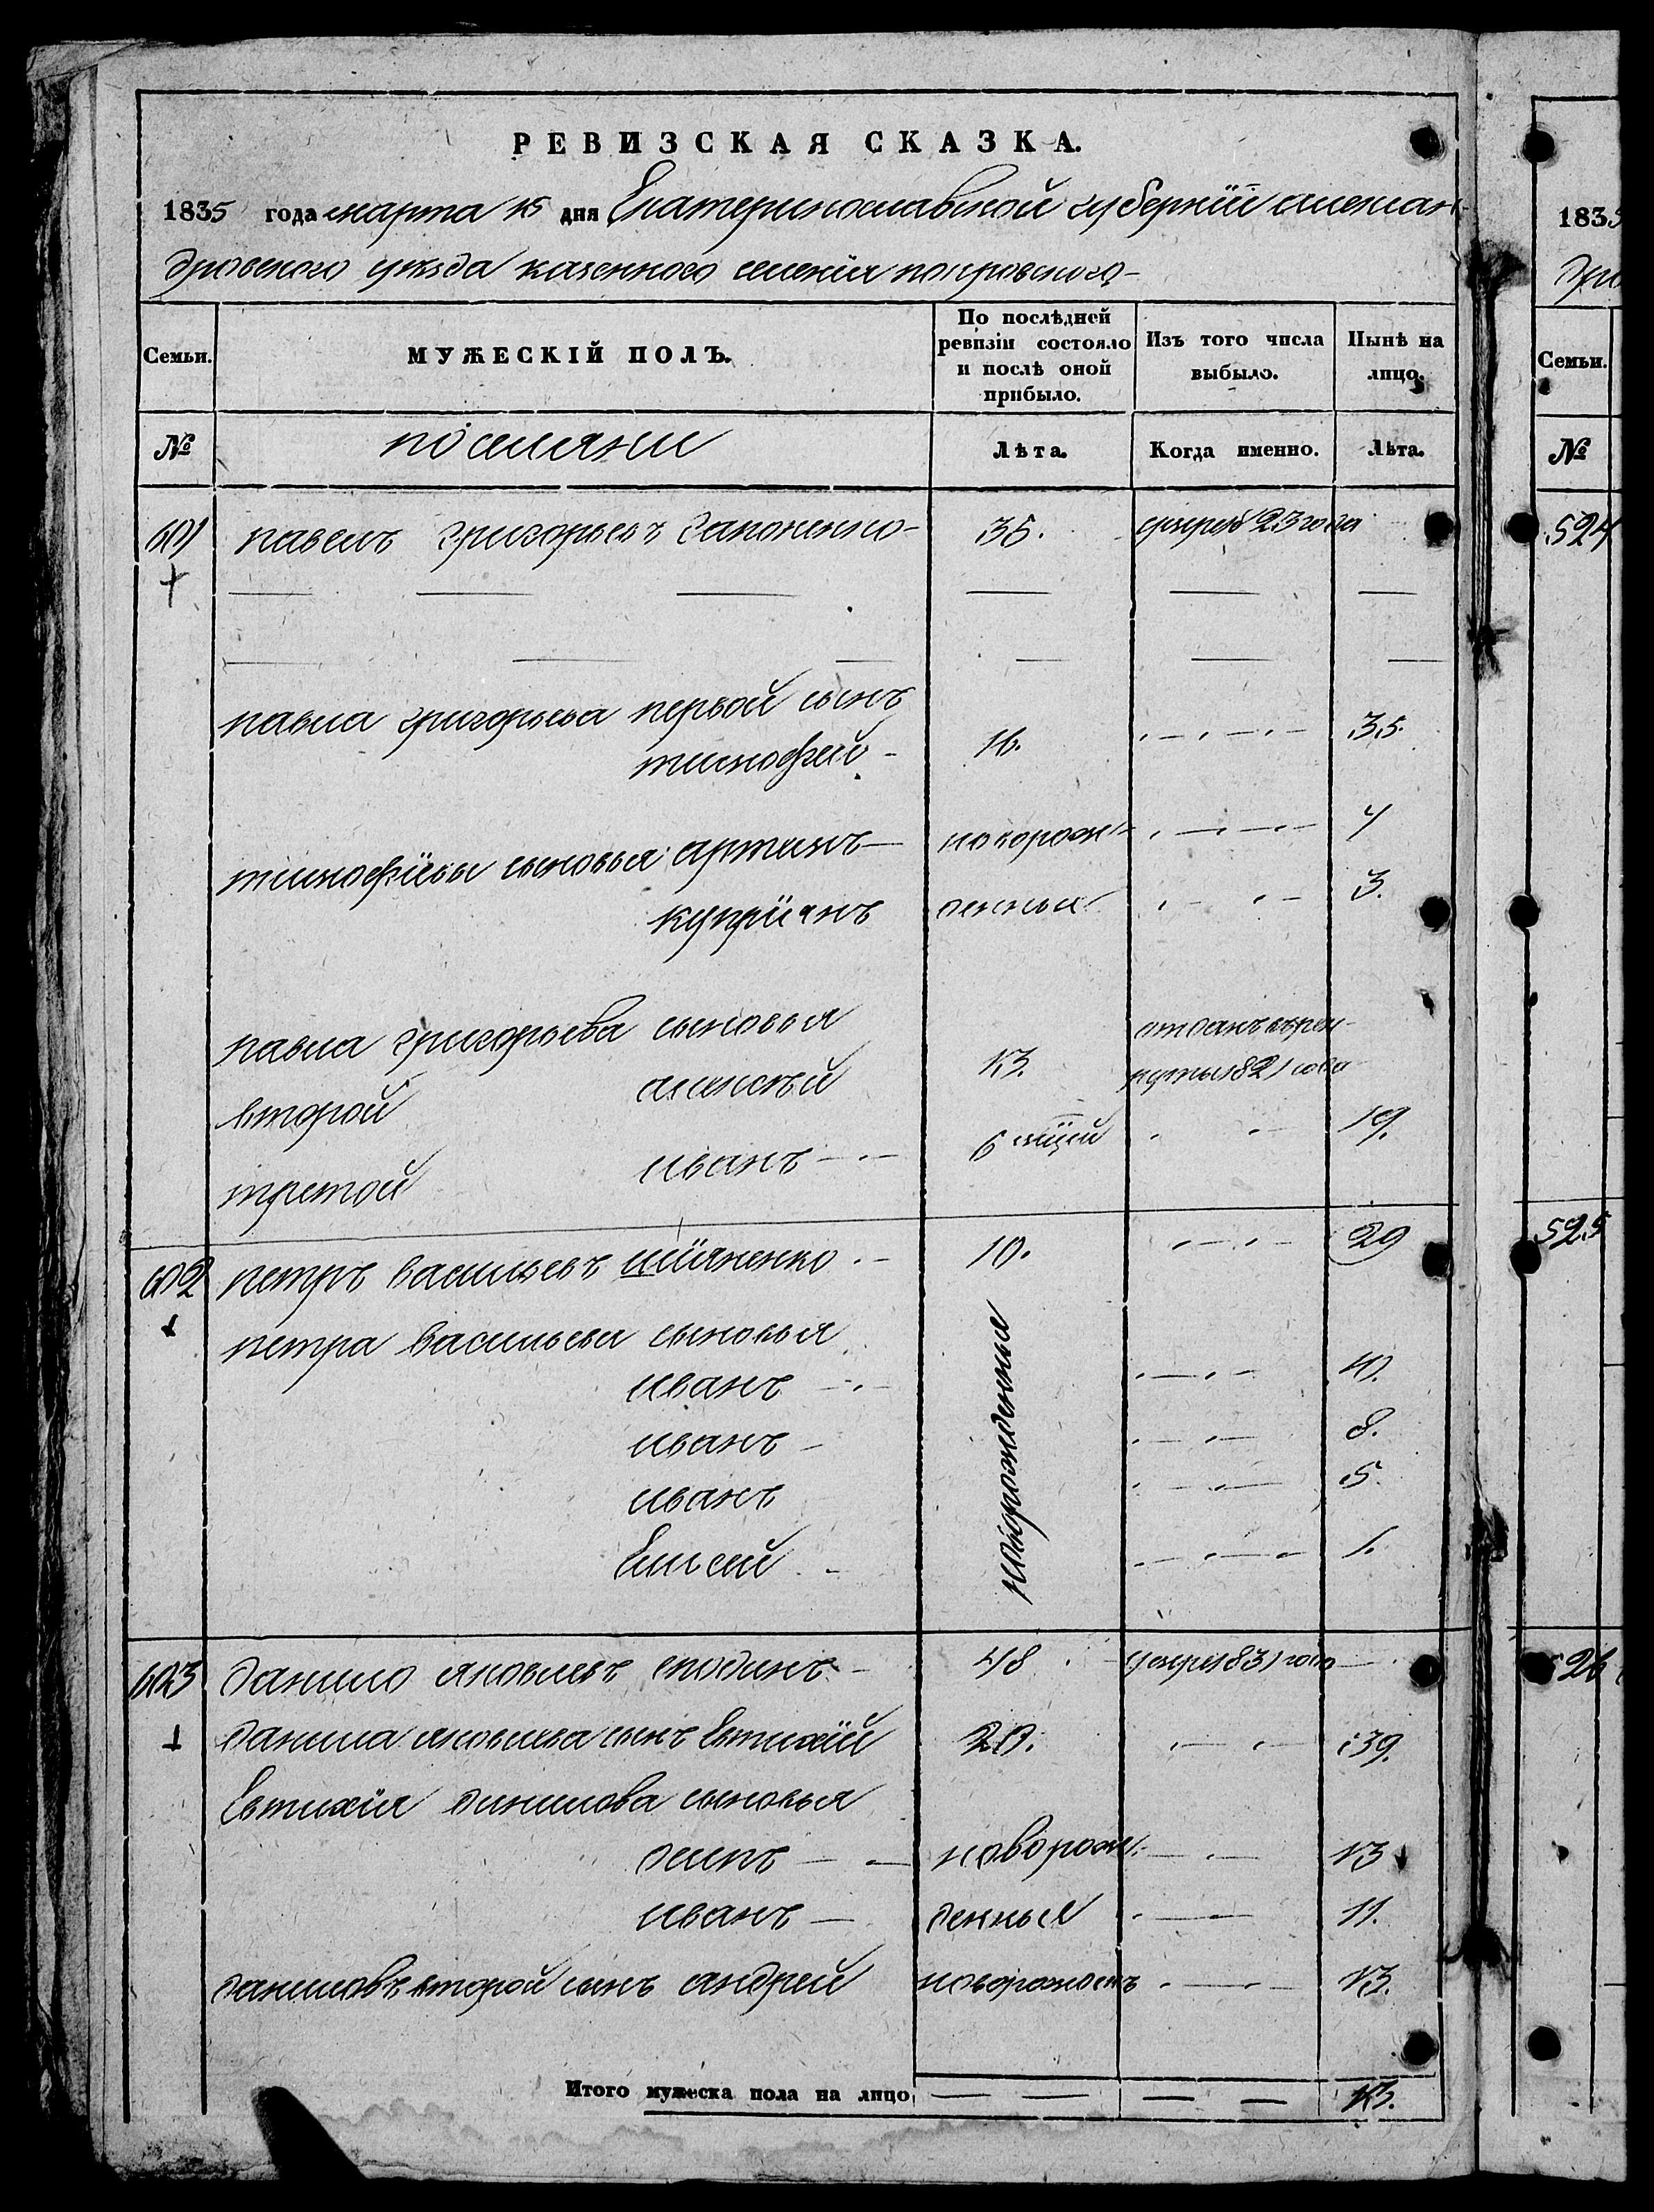 РЕВИЗСКАЯ СКАЗКА.
1835 года марта 15 дня Екатеринославской губернїи алексан
дровского уѣзда казенного селенїя покровского
Семьи. МУЖЕСКІЙ ПОЛЪ. По послѣдней ревизіи состояло и послѣ оной прибыло. Изъ того числа выбыло. Нынѣ на лицо.
№ поселяне Лѣта. Когда именно. Лѣта.
павелъ григорьевъ 35. 23 года
павла григорьева первой сынъ
тимофей 16. 35.
тимофїевы сыновья артемъ новорож 4
купрїянъ денныя 3.
павла григорьева сыновья
второй алексѣй 13. отданъ въ рек
руты 821 года
третой иванъ 6 19.
петръ васильевъ 10. 29
петра васильева сыновья новорожденныя
иванъ 10.
иванъ 8.
иванъ 5.
Елисей 1.
данило яковлевъ 48 умре 831 года
данила яковлева сынъ Евтихїй 20. 39.
Евтихїя данилова сыновья
новорож 13
иванъ денныя 11.
даниловъ второй сынъ андрей 13.
Итого мужеска пола на лицо 13.
1835
Семьи.
№
524
525
526